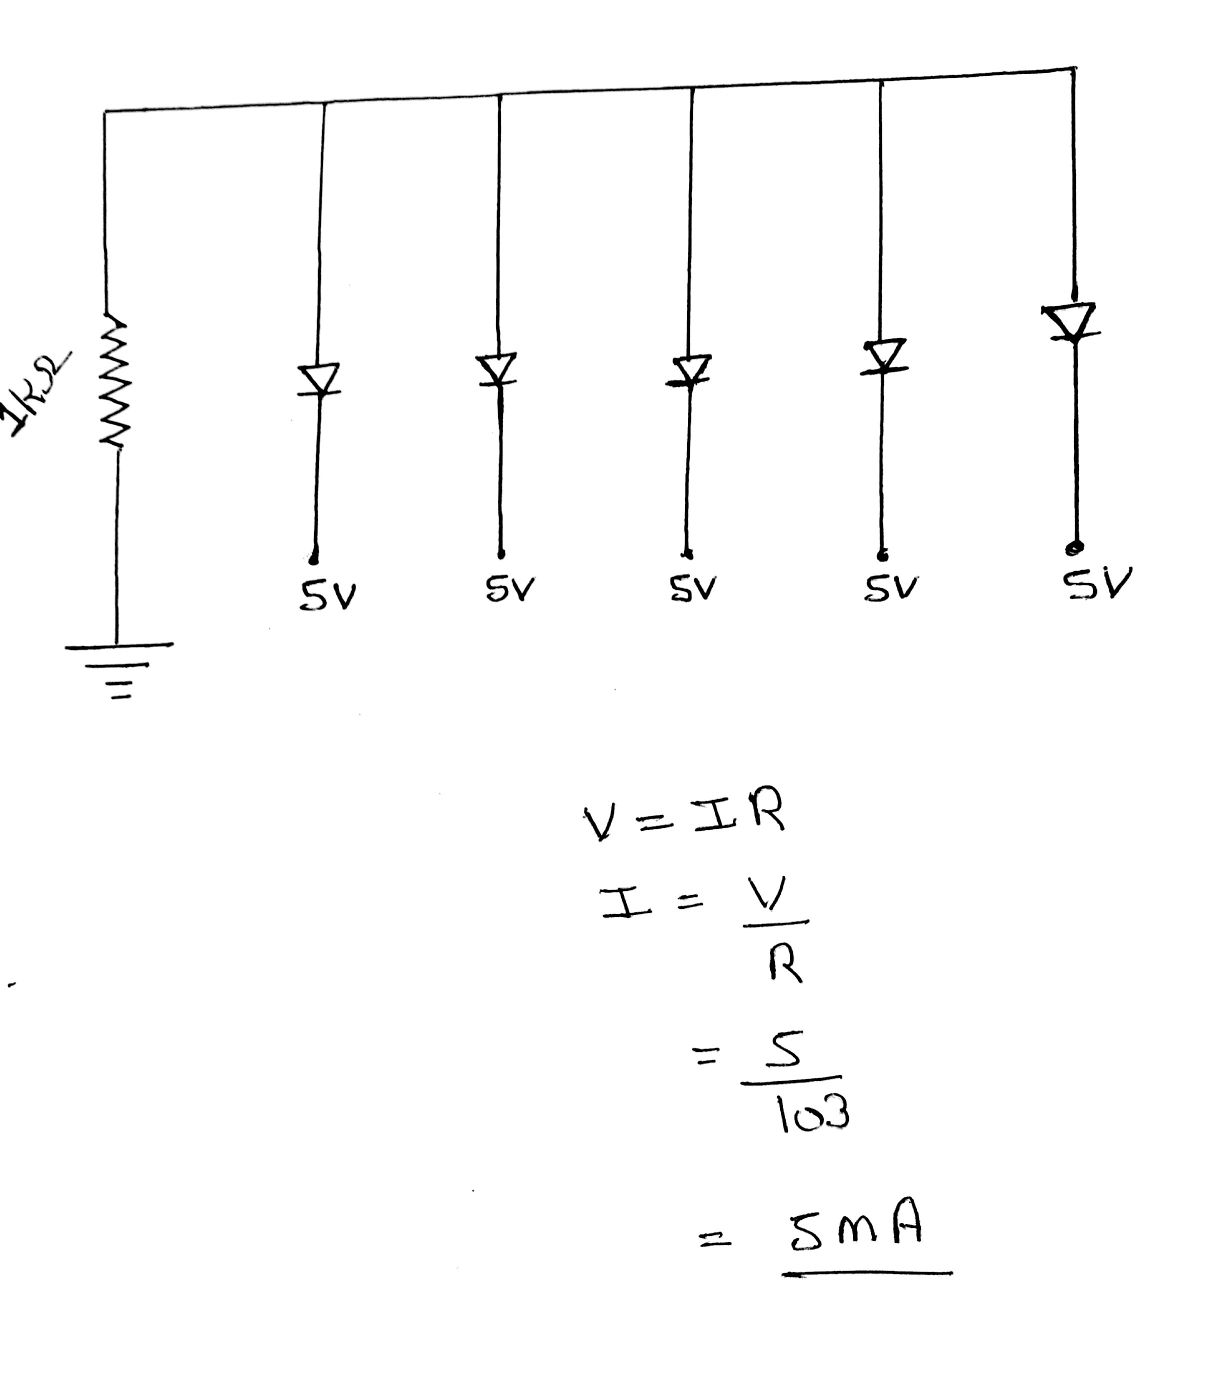 1KΩ
5V 5V 5V 5V 5V
V = IR
I = V
R
= 5
103
= 5mA